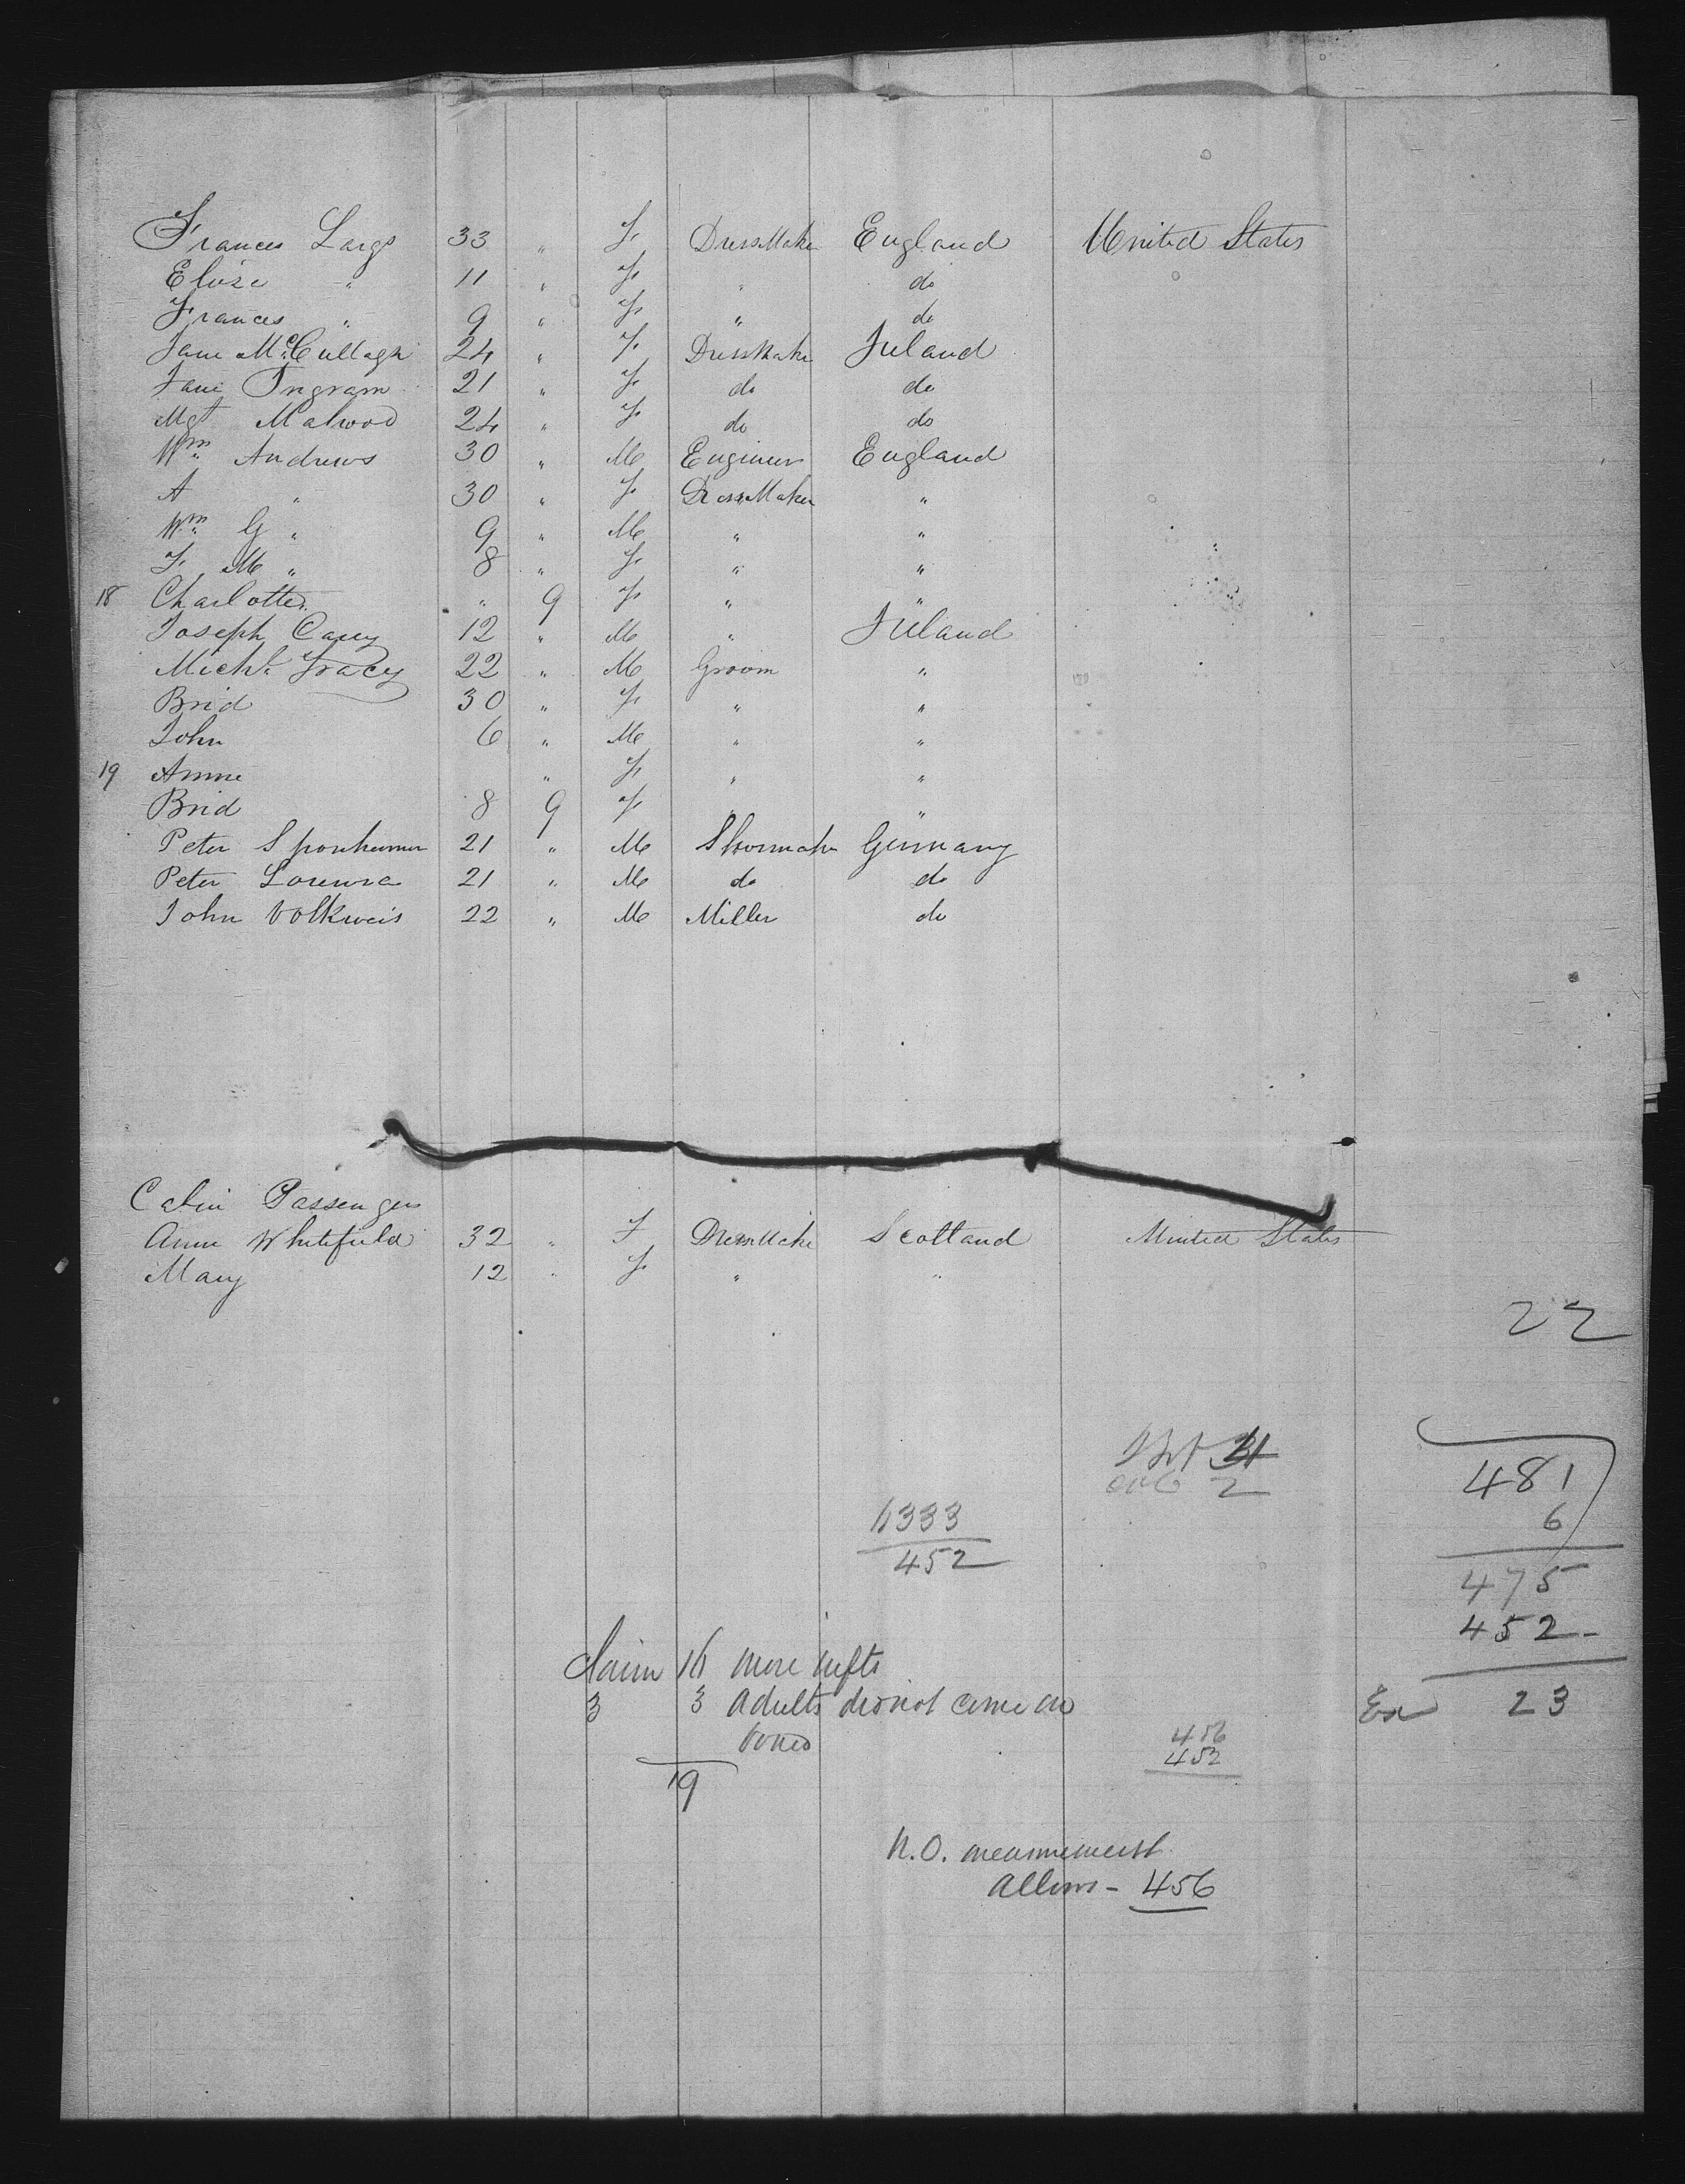 Frances Large 33 " F. DressMaker England United States
Eloise " 11 " F. " do
Frances " 9 " F. " do
Jane McCullagh 24 " F. DressMaker Ireland
Jane Ingram 21 " F. do do
Mgt Malwood 24 " F. do do
Wm Andrews 30 " M Engineer England
A " 30 " F. DressMaker "
Wm G " 9 " M " "
F. M " 8 " F. " "
18 Charlotte " " 9 F. " "
Joseph Carey 12 " M " Ireland
Michl Tracey 22 " M Groom "
Brid 30 " F. " "
John 6 " M " "
19 Anne " F. " "
Brid 8 9 F. " "
Peter Sponheimer 21 " M Shoemaker Germany
Peter Lorenza 21 " M do do
John Volkweis 22 " M Miller do
Cabin Passengers
Anne Whitefield 32 " F DressMake Scotland United States
Mary 12 " F. " "
22
21
2
481
6
333
452
475
452-
Claim 16 more infts
3 3 adults did not come on
board
Ex 23
456
452
19
N.O. measurement
Allows - 456